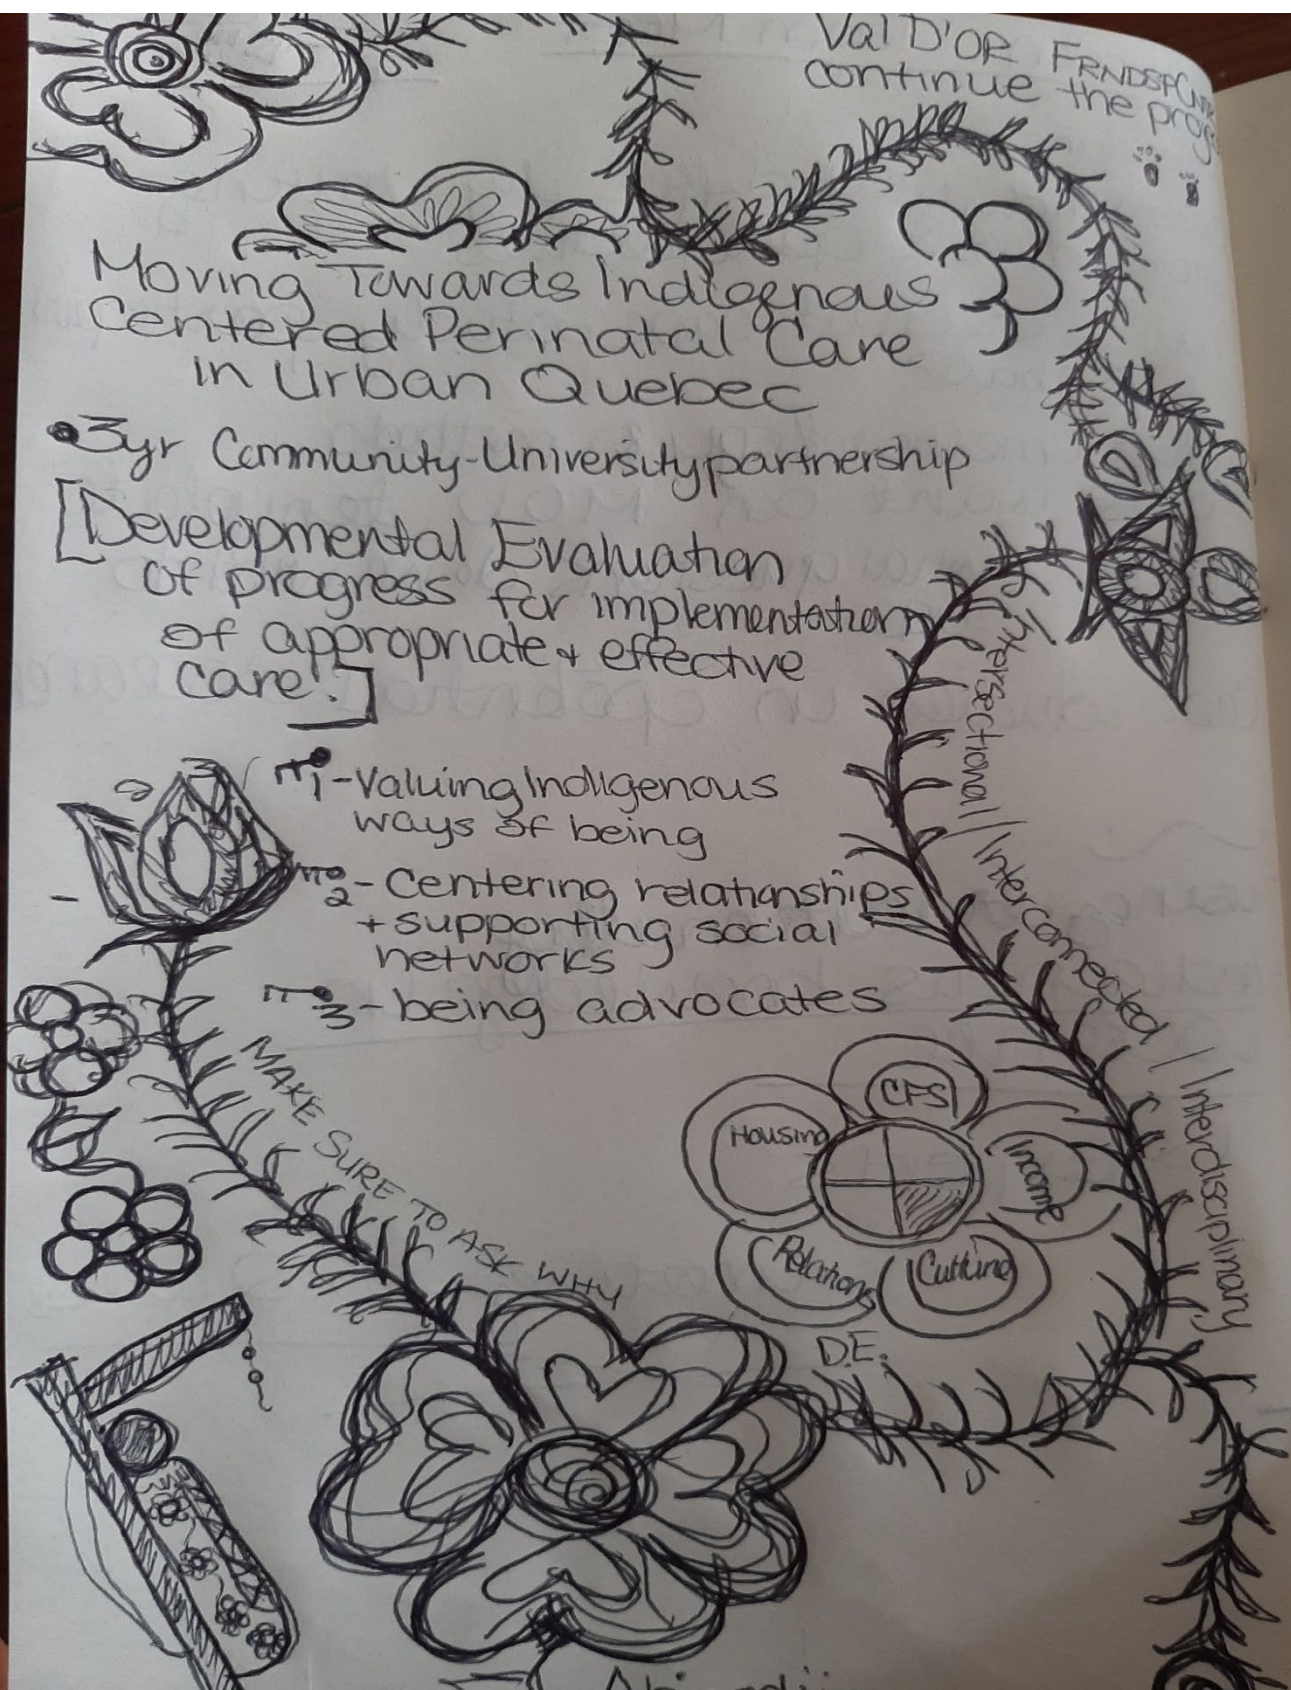 Val D'OR FRNDSP
continue the
Moving Towards Indigenous
Centered Perinatal Care
in Urban Quebec
3yr Community-University partnership
[Developmental Evaluation
of progress for implementation
of appropriate + effective
care!]
1-Valuing Indigenous
ways of being
2-Centering relationships
+ supporting social
networks
3-being advocates
Intersectional / Interconnected / Interdisciplinary
MAKE SURE TO ASK WHY
CFS
Housing
Income
Relations
D.E.